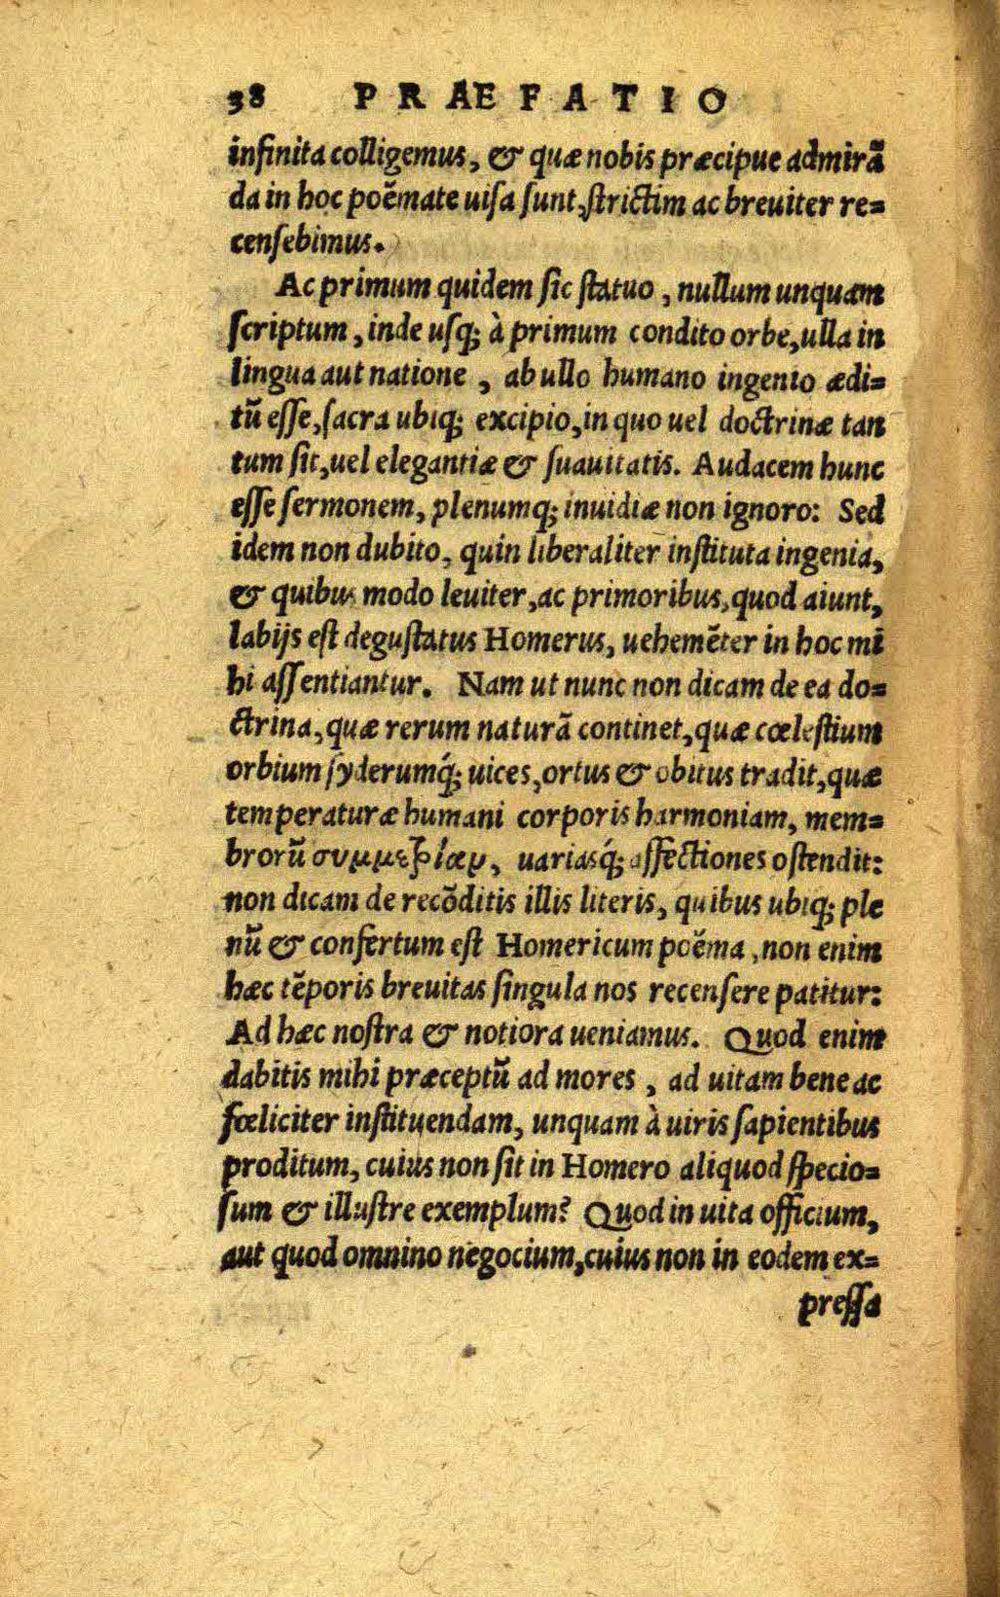 38 PRAEFATIO
infinita colligemus, & quæ nobis præcipue admirā
da in hoc poẽmate uisa sunt, strictim ac breuiter re=
censebimus.
Ac primum quidem sic statuo, nullum unquam
scriptum, inde usq; à primum condito orbe, ulla in
lingua aut natione, ab ullo humano ingenio ædi=
tū esse, sacra ubiq; excipio, in quo uel doctrinæ tan
tum sit, uel elegantiæ & suauitatis. Audacem hunc
esse sermonem, plenumq; inuidiæ non ignoro: Sed
idem non dubito, quin liberaliter instituta ingenia,
& quibus modo leuiter, ac primoribus, quod aiunt,
labijs est degustatus Homerus, uehemēter in hoc mi
hi assentiantur. Nam ut nunc non dicam de ea do=
ctrina, quæ rerum naturā continet, quæ cœlestium
orbium syderumq́; uices, ortus & obitus tradit, quæ
temperaturæ humani corporis harmoniam, mem=
brorū συμμετρίαμ, uariasq́; affectiones ostendit:
non dicam de recōditis illis literis, quibus ubiq; ple
nū & confertum est Homericum poẽma, non enim
hæc tēporis breuitas singula nos recensere patitur:
Ad hæc nostra & notiora ueniamus. Quod enim
dabitis mihi præceptū ad mores, ad uitam bene ac
fœliciter instituendam, unquam à uiris sapientibus
proditum, cuius non sit in Homero aliquod specio=
sum & illustre exemplum? Quod in uita officium,
aut quod omnino negocium, cuius non in eodem ex=
pressa